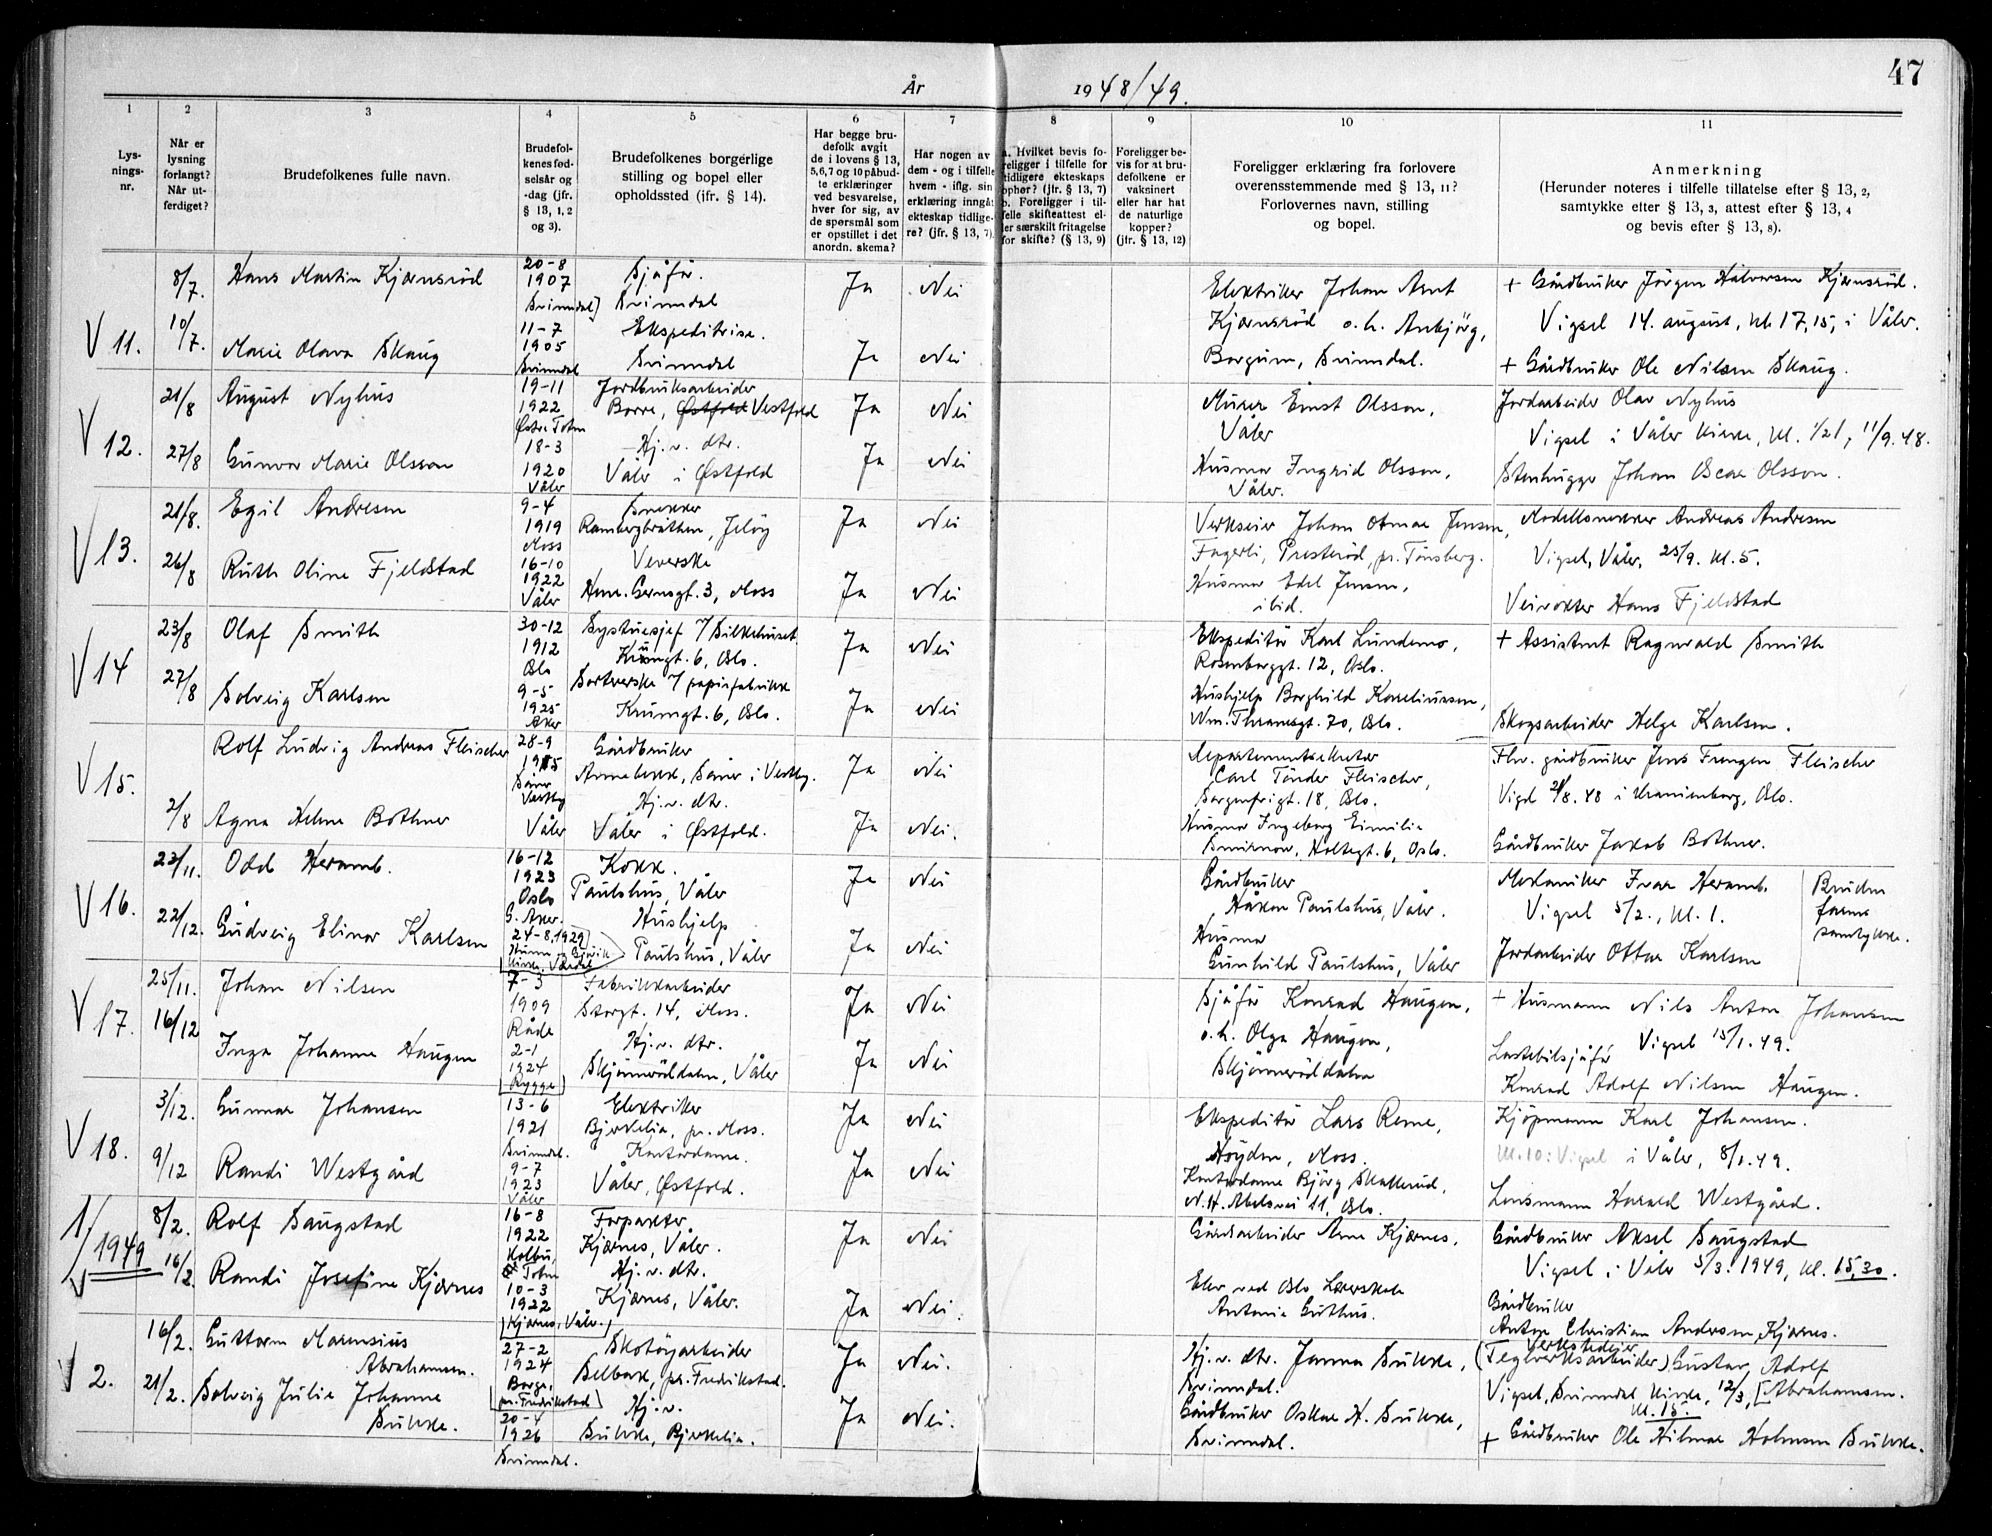 47
År 1948/49.
1 2 3 4 5 6 7 8 9 10 11
Lys-
nings-
nr.
Når er
lysning
forlangt?
Når ut-
ferdiget?
Brudefolkenes fulle navn.
Brudefol-
kenes fød-
selsår og
-dag (jfr.
§ 13, 1, 2
og 3).
Brudefolkenes borgerlige
stilling og bopel eller
opholdssted (jfr. § 14).
Har begge bru-
defolk avgit
de i lovens § 13,
5,6,7 og 10 påbud-
te erklæringer
ved besvarelse,
hver for sig, av
de spørsmål som
er opstillet i det
anordn. skema?
Har nogen av
dem - og i tilfelle
hvem - iflg. sin
erklæring inngåt
ekteskap tidlige-
re? (jfr. § 13, 7).
a. Hvilket bevis fo-
religger i tilfelle for
tidligere ekteskaps
ophør? (jfr. § 13, 7)
b. Foreligger i til-
felle skifteattest el-
ler særskilt fritagelse
for skifte? (§ 13, 9)
Foreligger be-
vis for at bru-
defolkene er
vaksinert
eller har hat
de naturlige
kopper?
(jfr. § 13, 12)
Foreligger erklæring fra forlovere
overensstemmende med § 13, 11?
Forlovernes navn, stilling
og bopel.
Anmerkning
(Herunder noteres i tilfelle tillatelse efter § 13, 2,
samtykke efter § 13, 3, attest efter § 13, 4
og bevis efter § 13, 8).
V 11.
8/7.
10/7.
Hans Martin Kjærnsrød
20-8
1907
Svinndal
Sjåfør.
Svinndal
Ja Nei
Marie Olava Skaug
11-7
1905
Svinndal
Ekspeditrise.
Svinndal
Ja Nei
Elektriker Johan Arnt
Kjærnsrød o.h. Anbjørg,
Borgund, Svinndal.
+ Gårdbruker Jørgen Halvorsen Kjærnsrød.
Vigsel 14. august, kl. 17,15, i Våler.
+ Gårdbruker Ole Nilsen Skaug.
V 12.
21/8
27/8
August Nyhus
19-11
1922
Østre Toten
Jordbruksarbeider
Borre, Østfold Vestfold
Ja Nei
Gunvor Marie Olsson
18-3
1920
Våler
Hj.v. dtr.
Våler i Østfold
Ja Nei
Murer Ernst Olsson,
Våler
Husmor Ingrid Olsson,
Våler.
Jordarbeider Olav Nyhus
Vigsel i Våler kirke, kl. 1/2 1, 11/9.48.
Stenhugger Johan Oscar Olsson.
V 13.
21/8.
26/8
Egil Andresen
9-4
1919
Moss
Snekker
Rambergbråthen, Jeløy
Ja Nei
Ruth Oline Fjeldstad
16-10
1922
Våler
Veverske
Henr. Gernsgt. 3, Moss
Ja Nei
Verkseier Johan Otmar Jensen,
Fagerli, Presterød, pr. Tønsberg.
Husmor Edel Jensen,
ibid.
Modellsnekker Andreas Andresen
Vigsel, Våler, 25/9. kl. 5.
Veivokter Hans Fjeldstad
V 14
23/8
27/8
Olaf Smith
30-12
1912
Oslo
Systuesjef / Silkehuset
Krumgt. 6, Oslo.
Ja Nei
Solveig Karlsen
9-5
1925
Aker
Sorterske / papirfabrikk
Krumgt. 6, Oslo.
Ja Nei
Ekspeditør Karl Lundemo,
Rosenborggt. 12, Oslo.
Hushjelp Borghild Korneliussen,
Wm. Thranesgt. 70, Oslo.
+ Assistent Ragnvald Smith
Skogsarbeider Helge Karlsen.
V 15.
2/8
Rolf Ludvig Andreas Fleischer
28-9
1915
Såner
Vestby
Gårdbruker
Annebekk, Såner i Vestby.
Ja Nei
Agna Helene Bothner
Våler
Hj.v. dtr.
Våler i Østfold.
Ja Nei.
Departementsekretær
Carl Tönder Fleischer,
Sorgenfrigt. 18, Oslo.
Husmor Ingeborg Eimilie
Smirnow, Holtegt. 6, Oslo.
Fhv. gårdbruker Jens Frengen Fleischer
Vigsl 21/8.48 i Uranienborg, Oslo.
Gårdbruker Jakob Bothner.
V 16.
23/11.
22/12.
Odd Heramb.
16-12
1923
Oslo
G. Aker.
Kokk.
Paulshus, Våler
Ja Nei
Gudveig Elinor Karlsen
24-8,1929
Hunn, Gjøvik
kirke, Vardal
Hushjelp
Paulshus, Våler
Ja Nei
Gårdbruker
Håkon Paulshus, Våler.
Husmor
Gunhild Paulshus, Våler
Mekaniker Ivar Heramb.
Vigsel 5/2., kl. 1.
Jordarbeider Ottar Karlsen
Brudens
farens
samtykke.
V 17.
25/11.
16/12
Johan Nilsen
7-3
1909
Råde
Fabrikkarbeider
Storgt. 14, Moss.
Ja Nei
Inga Johanne Haugen
2-1
1924
Rygge
Hj.v. dtr.
Skjønnerøddalen, Våler
Ja Nei
Sjåfør Konrad Haugen,
o.h. Olga Haugen,
Skjønnerøddalen
+ Husmann Nils Anton Johansen
Vigsel 15/1.49.
Lastebilsjåfør
Konrad Adolf Nilsen Haugen.
V 18.
3/12.
9/12
Gunnar Johansen
13-6
1921
Svinndal.
Elektriker
Bjerkelia, pr. Moss.
Ja Nei
Randi Westgård
9-7
1923
Våler
Kontordame.
Våler, Østfold.
Ja Nei
Ekspeditør Lars Reme,
Høyden, Moss.
Kontordame Bjørg Skallerud,
N.H. Abelsvei 11, Oslo.
Kjøpmann Karl Johansen.
kl. 10: Vigsel i Våler, 8/1.49.
Lensmann Harald Westgård.
V 1/1949
8/2.
16/2.
Rolf Saugstad
16-8
1922
Kolbu,
Toten
Forpakter
Kjærnes, Våler.
Ja Nei
Randi Josefine Kjærnes
10-3
1922
Kjærnes, Våler.
Hj.v. dtr.
Kjærnes, Våler.
Ja Nei.
Gårdarbeider Arne Kjærnes,
Elev ved Oslo Lærerskole
Antonie Guthus.
Gårdbruker Aksel Saugstad
Vigsel i Våler 5/3.1949, kl. 15,30.
Gårdbruker
Anton Christian Andersen Kjærnes.
V 2.
16/2.
21/2.
Guttorm Marensius
Abrahamsen.
27-2
1924
Borge,
pr. Fredrikstad
Skotøyarbeider
Selbakk, pr. Fredrikstad.
Ja Nei.
Solveig Julie Johanne
Sukke.
20-4
1926
Svinndal.
Hj.v.
Sukke, Bjerkelia.
Ja Nei.
Hj.v. dtr. Janna Sukke,
Svinndal.
Gårdbruker Oskar H. Sukke,
Svinndal.
Verkstedeier
(Teglverksarbeider) Gustav Adolf
Vigsel, Svinndal kirke, 12/3, [Abrahamsen.
kl. 15.
+ Gårdbruker Ole Hilmar Holmsen Sukke.